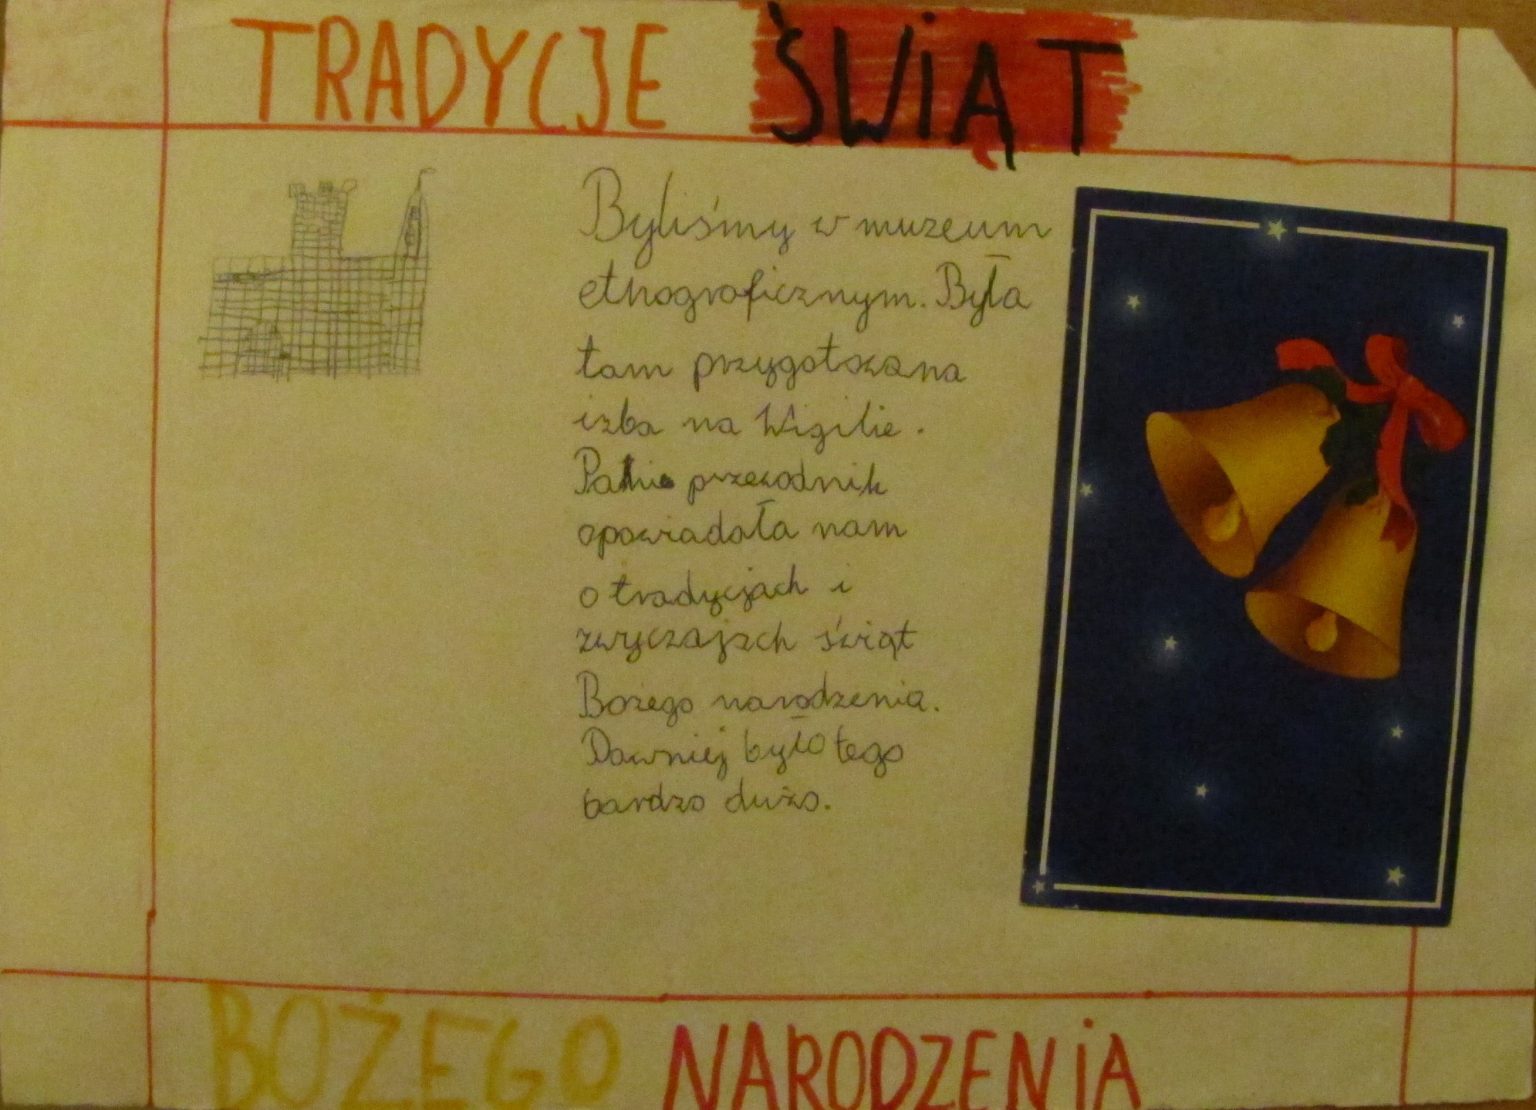 TRADYCJE ŚWIĄT
Byliśmy w muzeum
etnograficznym. Była
tam przygotowana
izba na Wigilie.
Pani przewodnik
opowiadała nam
o tradycjach i
zwyczajach świąt
Bożego narodzenia.
Dawniej było tego
bardzo dużo.
BOŻEGO NARODZENIA